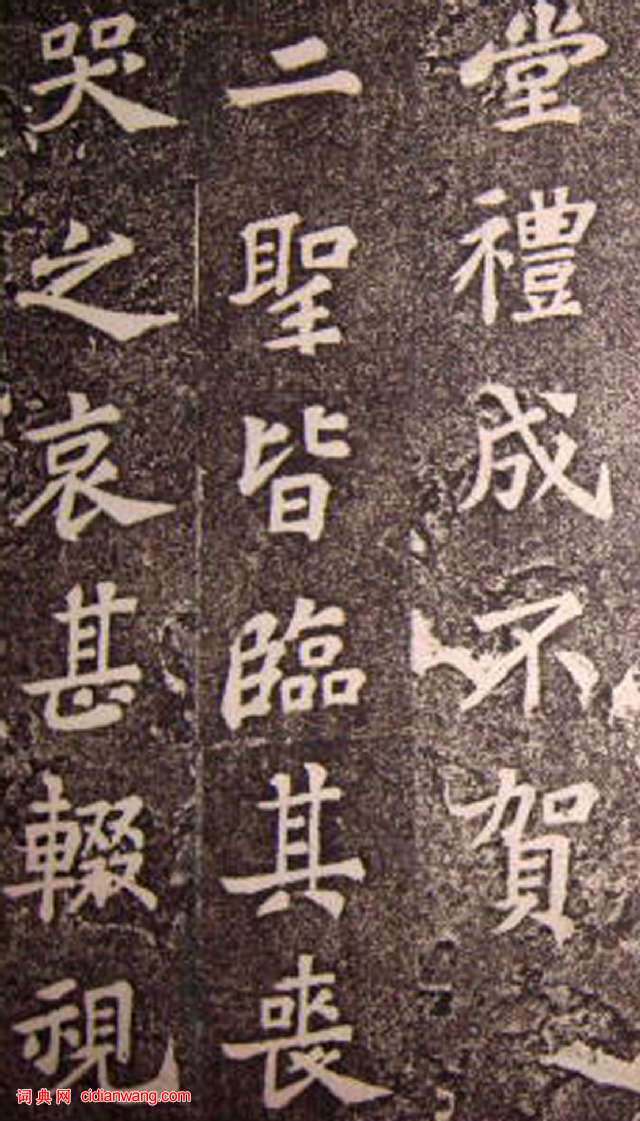 堂禮成不賀
二聖皆臨其喪
哭之哀甚輟視
词典网 cidianwang.com